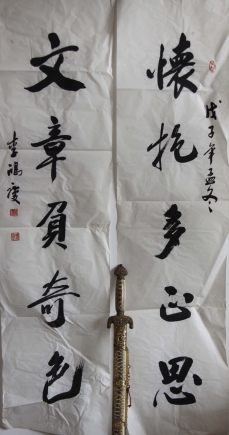 戊子年孟冬
懷抱多正思
文章負奇色
李福庆